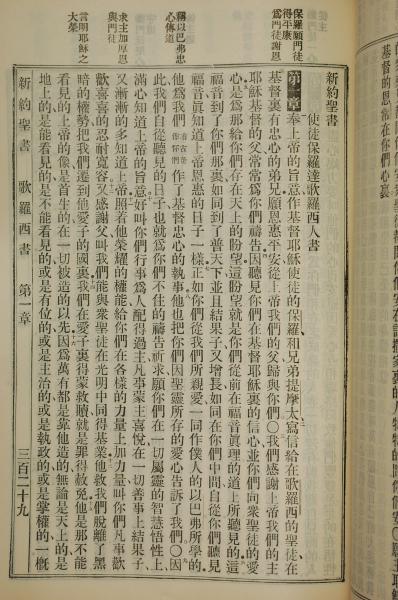 基督的恩常在你們心裏
新約聖書
使徒保羅達歌羅西人書
第一章奉上帝的旨意作基督耶穌使徒的保羅和兄弟提摩太寫信給在歌羅西的聖徒在
基督裏有忠心的弟兄願恩惠平安從上帝我們的父歸與你們〇我們感謝上帝我們的主
耶穌基督的父常常爲你們禱告因聽見你們在基督耶穌裏的信心並你們同衆聖徒的愛
心是爲那給你們存在天上的盼望這盼望就是你們從前在福音眞理的道上所聽見的這
福音到了你們那裏如同到了普天下並且結果子又增長如同在你們中間自從你們聽見
福音眞知道上帝恩惠的日子一樣正如你們從我們所親愛一同作僕人的以巴弗所學的
他爲我們作了基督忠心的執事他也把你們因聖靈所存的愛心告訴了我們〇因
此我們自從聽見的日子也就爲你們不住的禱告祈求願你們在一切屬靈的智慧悟性上
滿心知道上帝的旨意好叫你們行事爲人配得過主凡事蒙主喜悅在一切善事上結果子
又漸漸的多知道上帝照着他榮耀的權能給你們在各樣的力量上加力量叫你們凡事歡
歡喜喜的忍耐寬容又感謝父叫我們能與衆聖徒在光明中同得基業他救我們脫離了黑
暗的權勢把我們遷到他愛子的國裏我們在愛子裏得蒙救贖就是罪得赦免他是那不能
看見的上帝的像是首生的在一切被造的以先因爲萬有都是靠他造的無論是天上的是
地上的是能看見的是不能看見的或是有位的或是主治的或是執政的或是掌權的一槪
新約聖書 歌羅西書 第一章 三百二十九
保羅願門徒
得平康
爲門徒謝恩
稱以巴弗忠
心傳道
求主加厚恩
與門徒
言明耶穌之
大榮